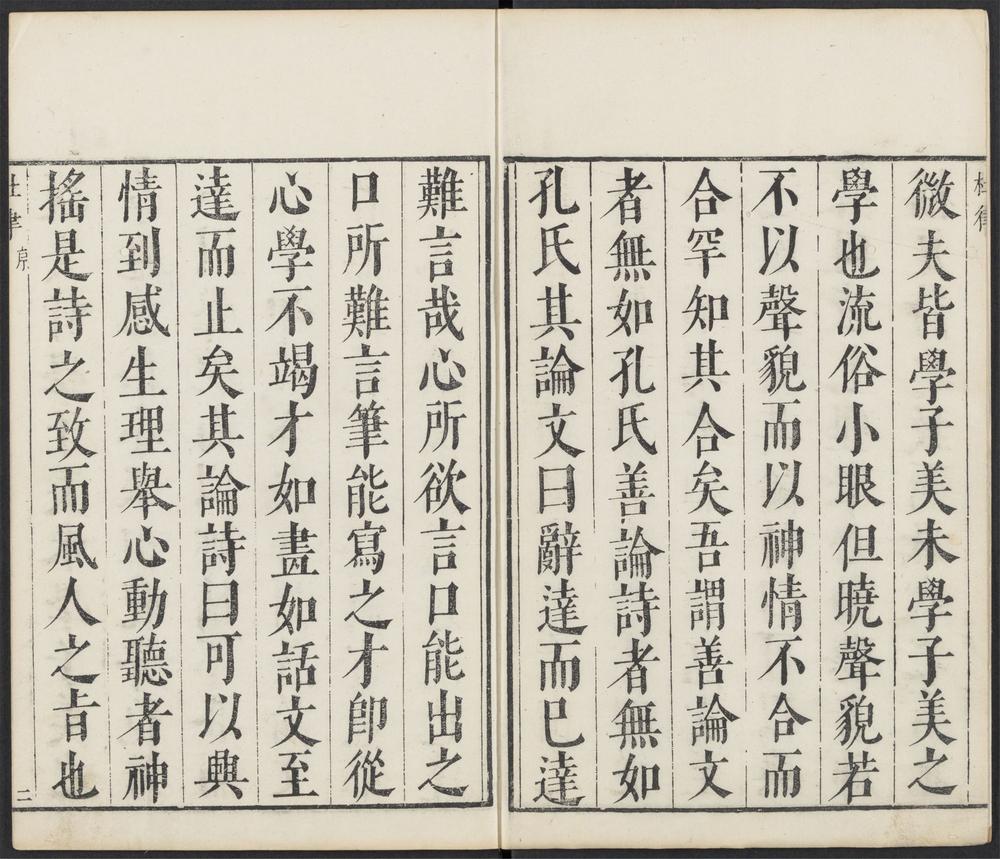 微夫皆學子美未學子美之
學也流俗小眼但曉聲貌若
不以聲貌而以神情不合而
合罕知其合矣吾謂善論文
者無如孔氏善論詩者無如
孔氏其論文曰辭達而已達
難言哉心所欲言口能出之
口所難言筆能寫之才卽從
心學不竭才如畫如話文至
達而止矣其論詩曰可以興
情到感生理舉心動聽者神
搖是詩之致而風人之旨也
杜律
二